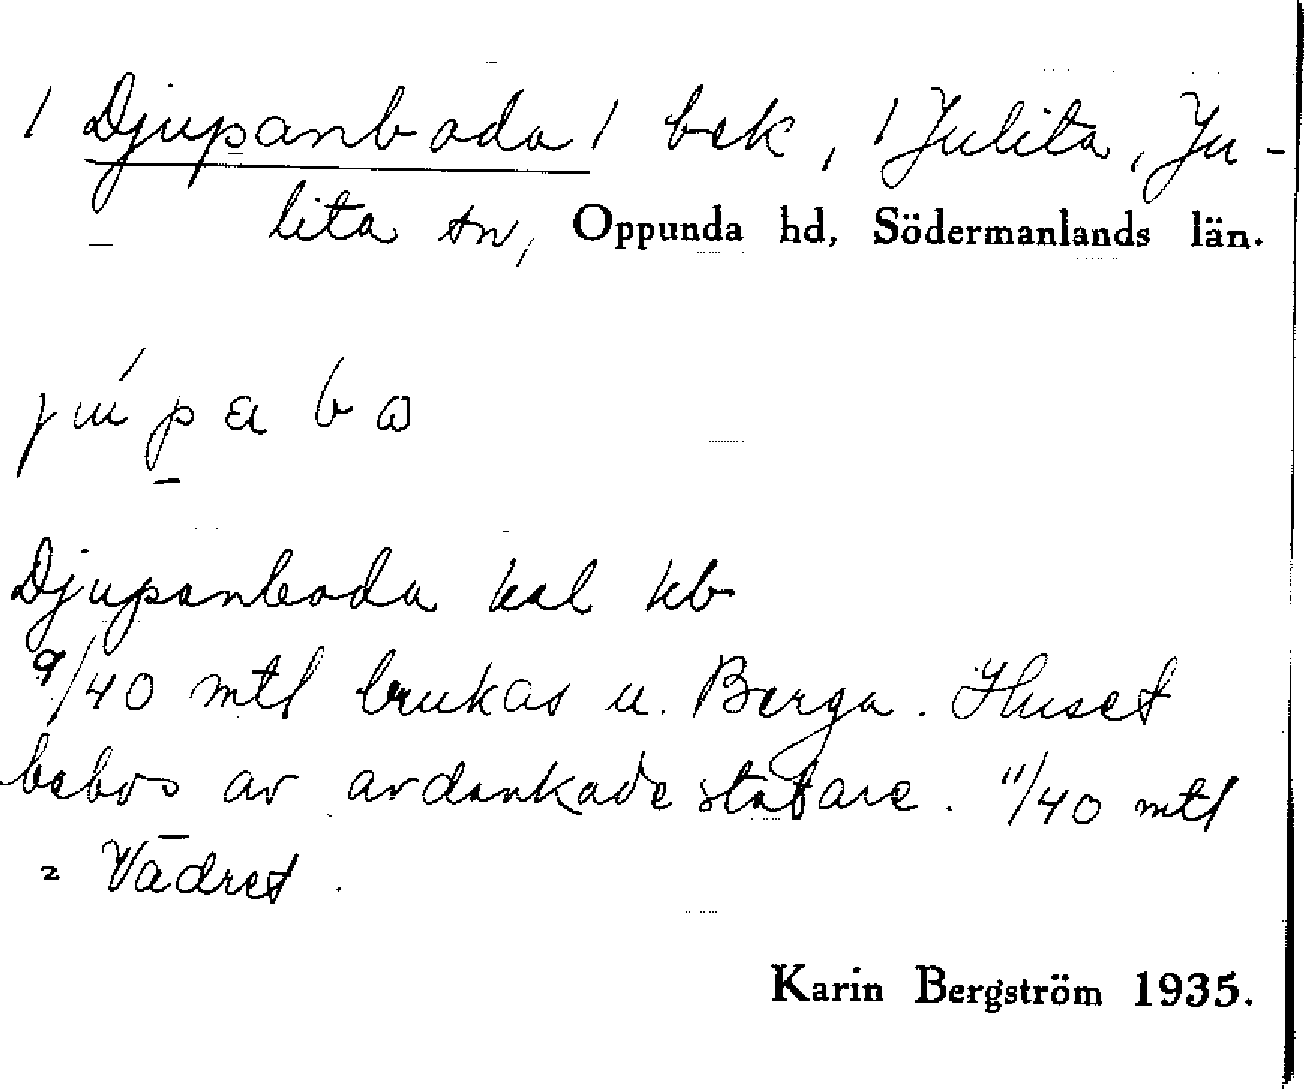 / Djupanboda / bek, / Julita, Ju-
lita sn, Oppunda hd, Södermanlands län.
Djupanboda kal kb
9/40 mtl brukas u. Berga. Huset
bebos av avdankade statare. 11/40 mtl
= Vädret.
Karin Bergström 1935.